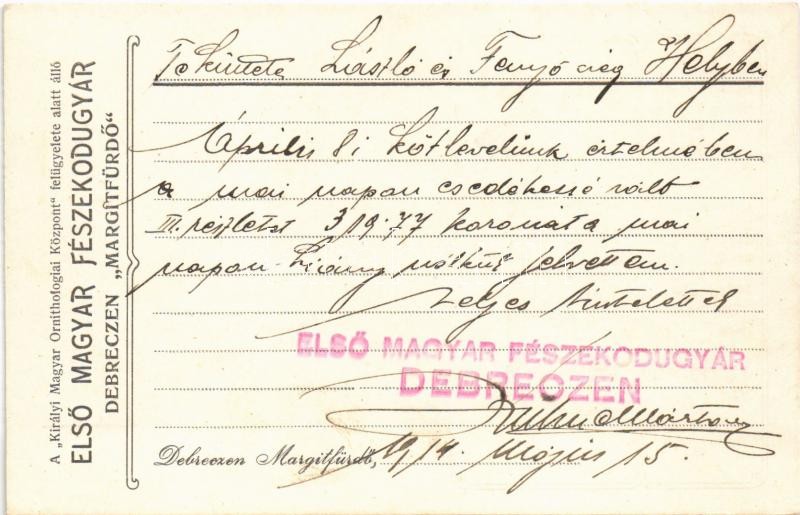 A „Királyi Magyar Ornithologiai Központ“ felügyelete alatt álló
ELSŐ MAGYAR FÉSZEKODUGYÁR
DEBRECZEN „MARGITFÜRDŐ“
László és Fenyő cég Helyben
Április 8 i kötlevelünk értelmében
a mai napon esedékessé vált
III. részletet 319.77 koronát a mai
napon hiány nélkül felvettem.
Teljes tisztelettel
ELSŐ MAGYAR FÉSZEKODUGYÁR
DEBRECZEN
Márton
Debreczen Margitfürdő, 1914 Május 15.